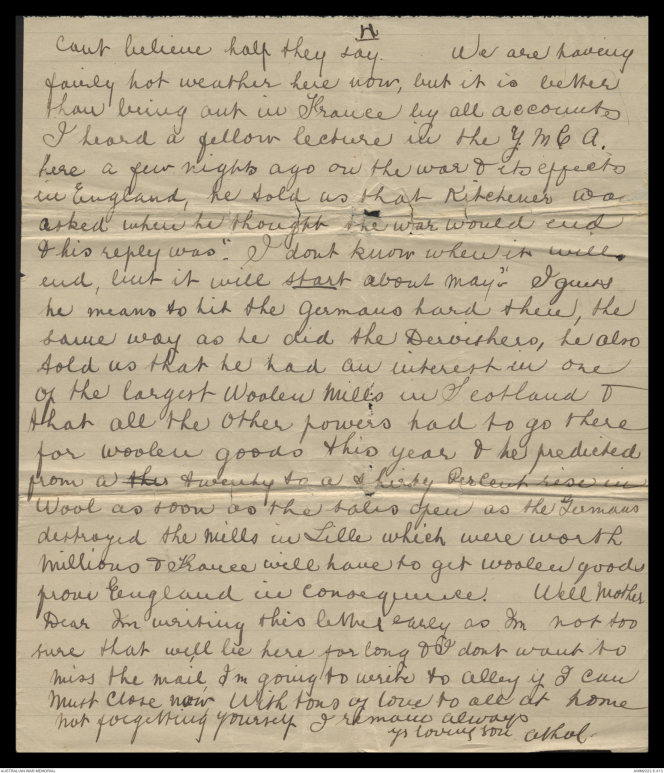 H
Cant believe half they say. We are having
fairly hot weather here now, but it is better
than being out in France by all accounts
I heard a fellow lecture in the Y.M.C.A.
here a few nights ago on the war & its effects
in England, he told us that Kitchener was
asked when he thought the war would end
& his reply was "I dont know when it will
end, but it will start about may" I guess
he means to hit the germans hard then, the
same way as he did the Dervishers, he also
told us that he had an interest in one
of the largest Woolen Mills in Scotland &
that all the other powers had to go there
for woolen goods this year & he predicted
from a twenty to a thirty Percent rise in
Wool as soon as the sales open as the Germans
destroyed the Mills in Lille which were worth
Millions & France will have to get woolen goods
from England in consequence. Well Mother
Dear Im writing this letter early as Im not too
sure that will be here for long & I dont want to
miss the mail I'm going to write to alley if I can
Must Close now With tons of love to all at home
not forgetting yourself I remain always
yr loving son Athol.
AUSTRALIAN WAR MEMORIAL